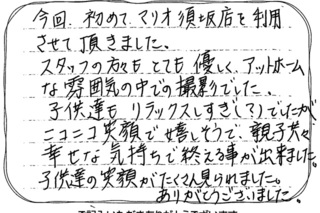 今回、初めて、マリオ須坂店を利用
させて頂きました。
スタッフの方々もとても優しく、アットホーム
な雰囲気の中での撮影でした。
子供達もリラックスしすぎ(?)でしたが
ニコニコ笑顔で嬉しそうで、親子共々
幸せな気持ちで終える事が出来ました。
子供達の笑顔がたくさん見られました。
ありがとうございました。